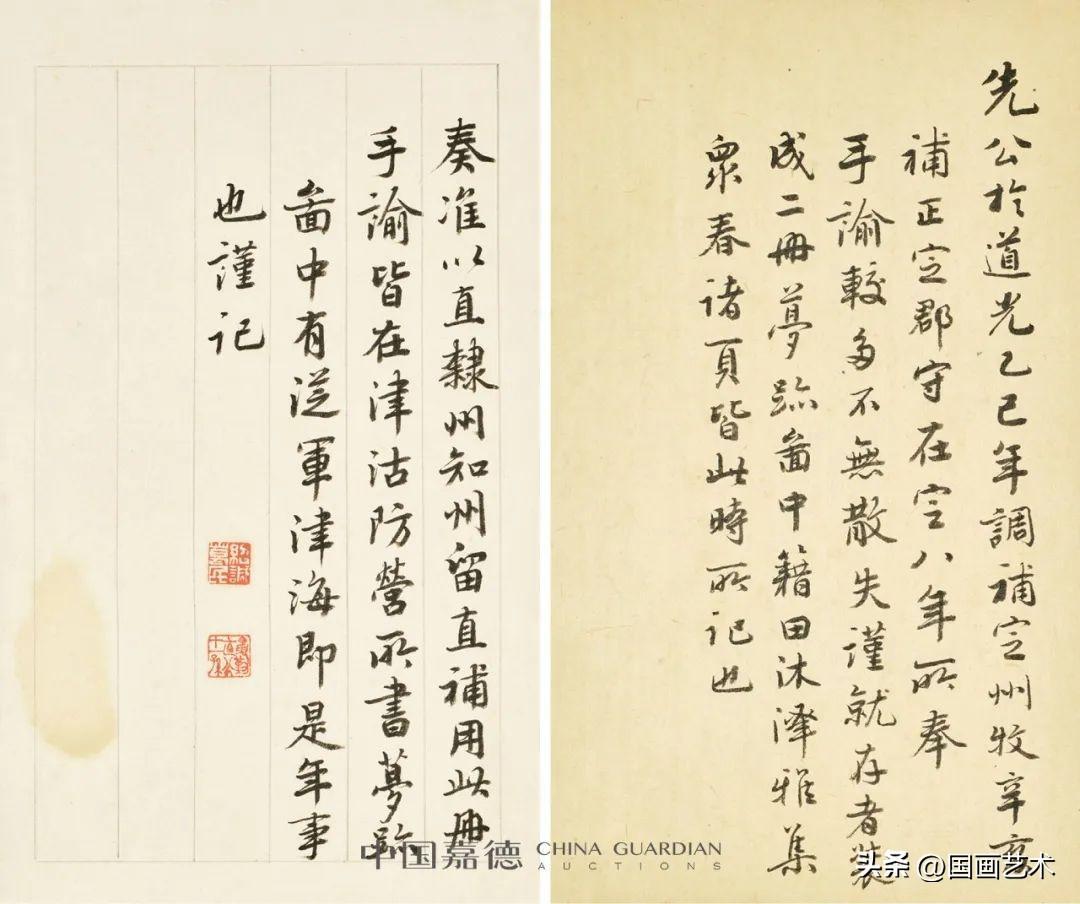 先公於道光乙巳年調補定州牧辛亥
補正定郡守在定八年所奉
手諭較多不無散失謹就存者裝
成二冊夢跡圖中籍田沐澤雅集
眾春諸頁皆此時所記也
奏准以直隸州知州留直補用此冊
手諭皆在津沽防營所書夢跡
圖中有從軍津海即是年事
也謹記
中国嘉德 CHINA GUARDIAN
AUCTIONS
头条 @国画艺术